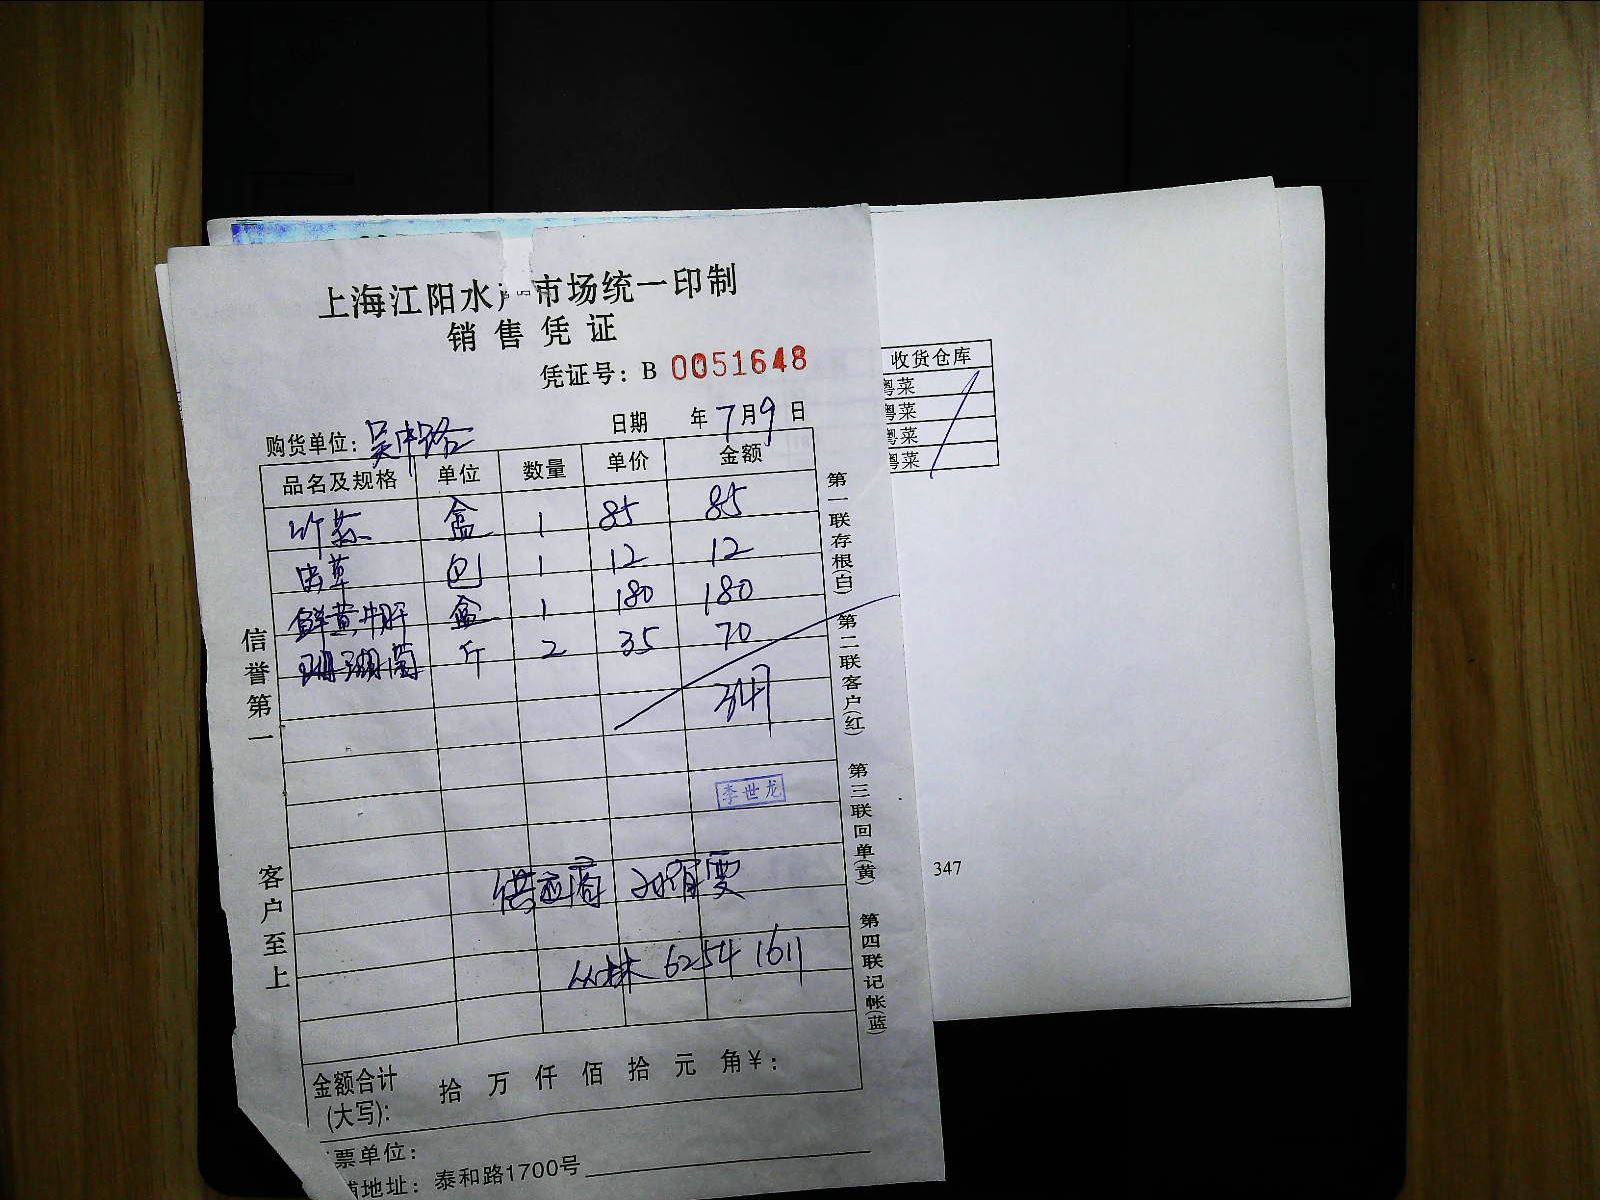 上海江阳水产市场统一印制
销售凭证
凭证号：B 0051648
购货单位：吴中路 日期 年7月9日
品名及规格 单位 数量 单价 金额
竹荪 盒 1 85 85
虫草 包 1 12 12
鲜黄牛肝 盒 1 180 180
珊瑚菌 斤 2 35 70
347
李世龙
供应商
丛林 6254 1611
金额合计(大写)： 拾 万 仟 佰 拾 元 角￥：
票单位：
地址：泰和路1700号
信誉第一
客户至上
第一联存根(白) 第二联客户(红) 第三联回单(黄) 第四联记帐(蓝)
收货仓库
粤菜
粤菜
粤菜
粤菜
347